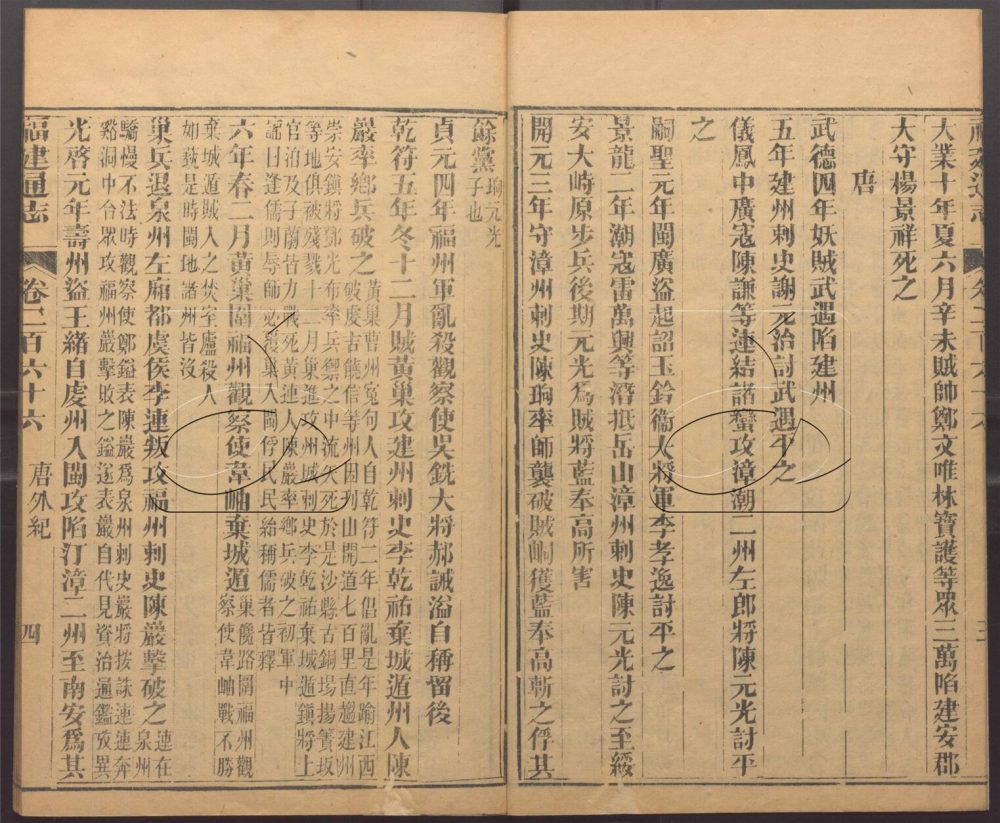 大業十年夏六月辛未賊帥鄭文唯林寶護等眾三萬陷建安郡
大守楊景祥死之
唐
武德四年妖賊武遇陷建州
五年建州刺史謝元治討武遇平之
儀鳳中廣寇陳謙等連結諸蠻攻漳潮二州左郎將陳元光討平
之
嗣聖元年閩廣盜起詔玉鈐衞大將軍李孝逸討平之
景龍二年潮寇雷萬興等潛抵岳山漳州刺史陳元光討之至綏
安大峙原步兵後期元光爲賊將藍奉高所害
開元三年守漳州刺史陳珦率師襲破賊峒獲藍奉高斬之俘其
餘黨珦元光
子也
貞元四年福州軍亂殺觀察使吳銑大將郝誠溢自稱留後
乾符五年冬十二月賊黃巢攻建州刺史李乾祐棄城遁州人陳
巖率鄉兵破之黃巢曹州寃句人自乾符二年倡亂是年踰江西
破虔吉饒信等州因刋山開道七百里直趨建州
崇安鎮將鄧光布率兵禦之中流矢死於是沙縣古銅場揚簣坂
等地俱被殘戮十二月巢進攻州城刺史李乾祐棄城遁鎮將上
官洎及子蘭皆力戰死黃連人陳巖率鄉兵破之初軍中
謠曰逢儒則辱師必覆巢入閩俘民民紿稱儒者皆釋
六年春二月黃巢圍福州觀察使韋岫棄城遁巢儳路圍福州觀
察使韋岫戰不勝
棄城遁賊入之焚室廬殺人
如蓺是時閩地諸州皆沒
巢兵退泉州左廂都虞侯李連叛攻福州刺史陳巖擊破之連在
泉州
驕慢不法時觀察使鄭鎰表陳巖爲泉州刺史巖將按誅連連奔
谿洞中合眾攻福州巖擊敗之鎰遂表巖自代見資治通鑑攷異
光啓元年壽州盜王緒自虔州入閩攻陷汀漳二州至南安爲其
福建通志
卷二百六十六
唐外紀
四